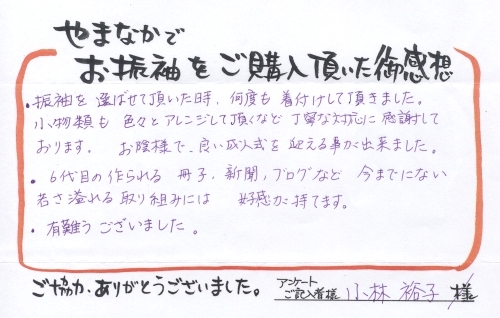 やまなかで
お振袖をご購入頂いた御感想
・振袖を選ばせて頂いた時、何度も着付けして頂きました。
小物類も色々とアレンジして頂くなど丁寧な対応に感謝して
おります。 お陰様で、良い成人式を迎える事が出来ました。
・6代目の作られる 冊子、新聞、ブログなど 今までにない
若さ溢れる取り組みには 好感が持てます。
・有難うございました。
ご協力、ありがとうございました。 アンケートご記入者様 小林 裕子 様